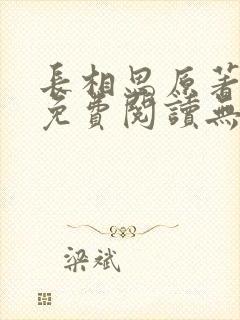 長相思原著
免費閱讀無
梁斌